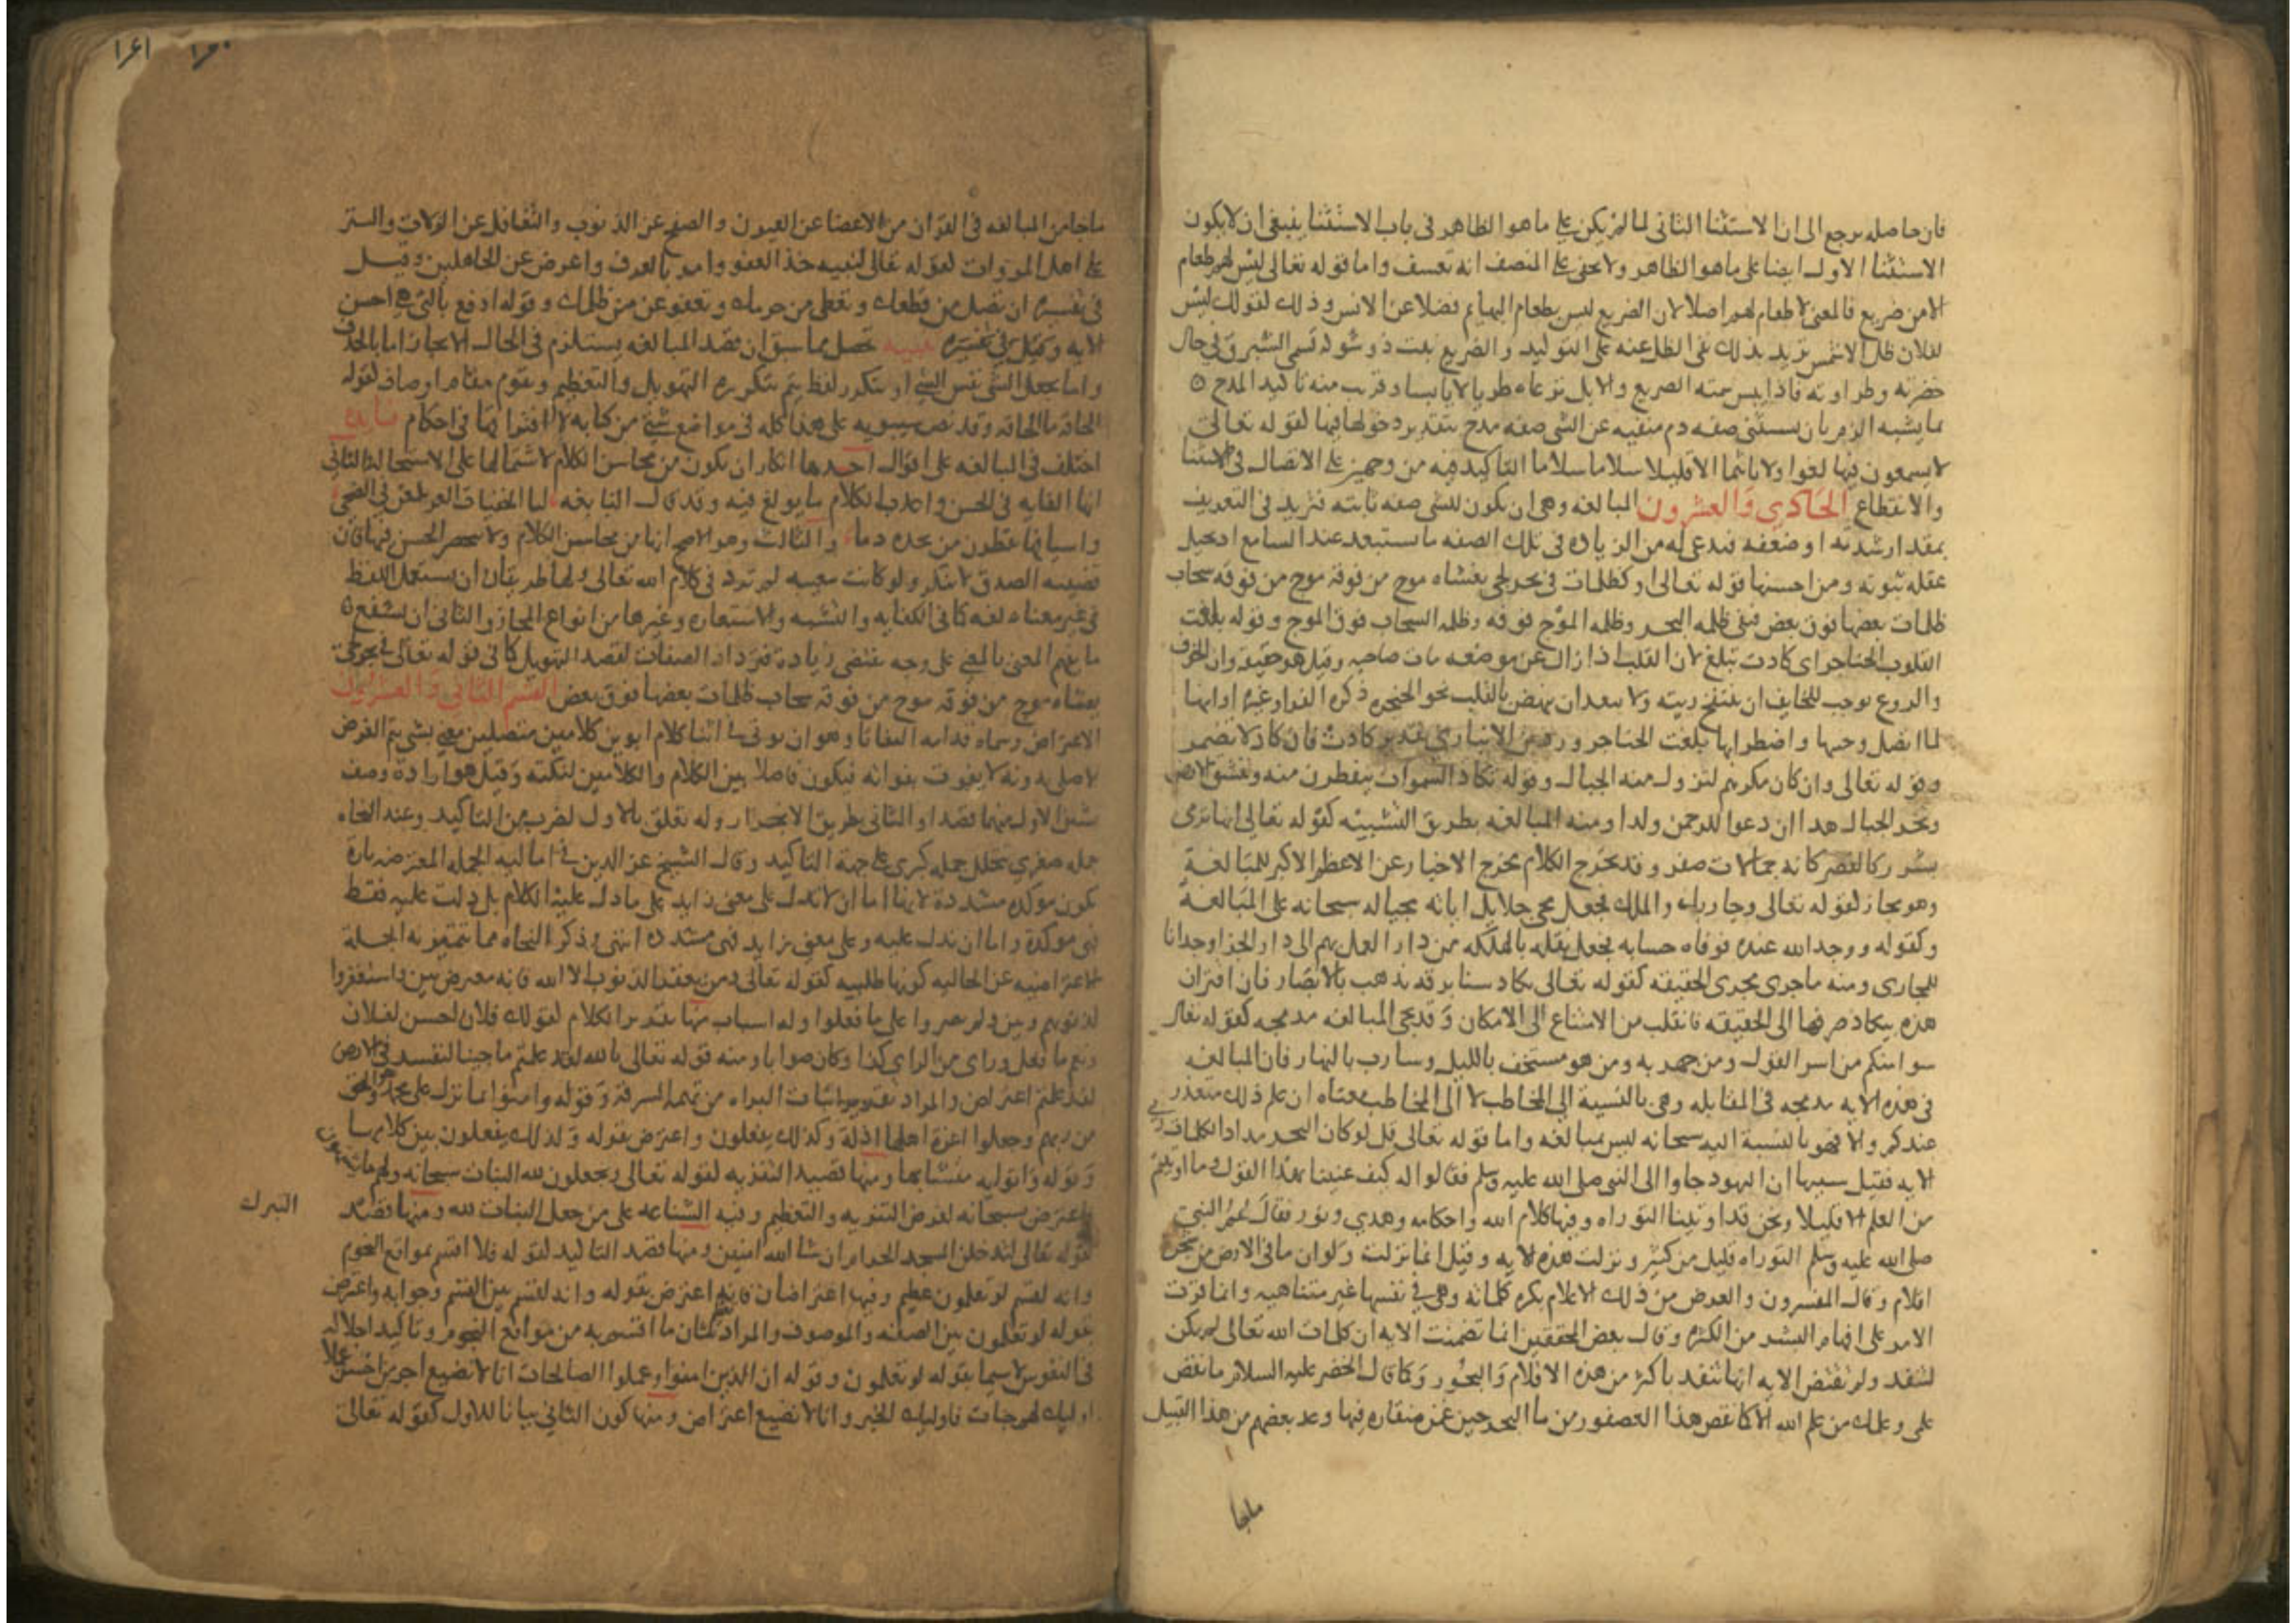 فان حاصله يرجع الى ان الاستثنا الثانى لما لم يكن على ما هو الظاهر فى باب الاستثنا ينبغى ان لا يكون
الاستثنا الاول ايضا على ما هو الظاهر ولا يخفى على المنصف انه تعسف واما قوله تعالى ليس لهم طعام
الا من ضريع فالمعنى لا طعام لهم اصلا لان الضريع ليس بطعام البهايم فضلا عن الانس وذلك لقولك ليس
لفلان ظل الا الشمس تريد بذلك نفى الظل عنه على التوكيد والضريع نبت ذو شوك تسمى الشبرق فى حال
خضرته وطراوته فاذا يبس سمته الضريع والابل ترعاه طريا لا يابسا وقريب منه تاكيد المدح
بما يشبه الذم بان يستثنى صفه دم منفيه عن الشى صفه مدح بتقدير دخولها فيها لقوله تعالى
لا يسمعون فيها لغوا ولا تاثيما الا قليلا سلاما سلاما التاكيد فيه من وجهين على الاتصال فى الاستثنا
والانقطاع الحادي والعشرون المبالغه وهى ان يكون للشى صفه ثابته فتزيد فى التعريف
بمقدار شدته او ضعفه فيدعى له من الزياده فى تلك الصفه ما يستبعد عند السامع او يحيل
عقله ثبوته ومن احسنها قوله تعالى او كظلمات فى بحر لجى يغشاه موج من فوقه موج من فوقه سحاب
ظلمات بعضها فوق بعض فهى ظلمه البحر وظلمه الموج فوقه وظلمه السحاب فوق الموج وقوله بلغت
القلوب الحناجر اى كادت تبلغ لان القلب اذا زال عن موضعه مات صاحبه وقيل هو حقيقة وان الخوف
والروع يوجب للخايف ان تنتفخ ريته ولا يبعد ان ينهض بالقلب نحو الحنجره ذكره الفرا وغيره او انها
لما اتصل وجيبها واضطرابها بلغت الحناجر ورد ابن الانبارى تقدير كادت فان كاد لا تضمر
وقوله تعالى وان كان مكرهم لتزول منه الجبال وقوله تكاد السموات يتفطرن منه وتنشق الارض
وتخر الجبال هدا ان دعوا للرحمن ولدا ومنه المبالغه بطريق التشبيه كقوله تعالى انها ترى
بشرر كالقصر كانه جمالات صفر وقد يخرج الكلام مخرج الاخبار عن الاعظم الاكبر للمبالغة
وهو مجاز لقوله تعالى وجا ربك والملك فجعل مجى جلايل اياته مجيا له سبحانه على المبالغة
وكقوله ووجد الله عنده فوفاه حسابه فجعل نقله بالهلكه من دار العمل بهم الى دار الجزا وجدانا
للمجازى ومنه ما جرى مجرى الحقيقه كقوله تعالى يكاد سنا برقه يذهب بالابصار فان اقتران
هذه بيكاد صرفها الى الحقيقه فانقلب من الامتناع الى الامكان وقد تجى المبالغه مدمجه كقوله تعالى
سوا منكم من اسر القول ومن جهر به ومن هو مستخف بالليل وسارب بالنهار فان المبالغه
فى هذه الايه مدمجه فى المقابله وهى بالنسبة الى المخاطب لا الى المخاطب معناه ان علم ذلك متعذر
عندكم والا فهو بالنسبة اليه سبحانه ليس بمبالغه واما قوله تعالى قل لو كان البحر مدادا لكلمات ربى
الايه فقيل سببها ان اليهود جاوا الى النبى صلى الله عليه وسلم فقالوا له كيف عنينا بهذا القول وما اوتيتم
من العلم الا قليلا ونحن قد اوتينا التوراه وفيها كلام الله واحكامه وهدي ونور فقال لهم النبى
صلى الله عليه وسلم التوراه قليل من كثير ونزلت هذه الايه وقيل انما نزلت ولو ان ما فى الارض من شجرة
اقلام وقال المفسرون والغرض من ذلك الاعلام بكثرة كلماته وهى فى نفسها غير متناهيه وانما قربت
الامر على افهام البشر من الكثره وقال بعض المحققين انما تضمنت الايه ان كلمات الله تعالى لم يكن
لتنفد ولم تقتض الايه انها تنفد باكثر من هذه الاقلام والبحور وكما قال الخضر عليه السلام ما نقص
علمى وعلمك من علم الله الا كما نقص هذا العصفور من ما البحر حين غمز منقاره فيها وعد بعضهم من هذا القبيل
ماجا
١٦١
ماجا من المبالغه فى القران من الاغضا عن العيوب والصفح عن الذنوب والتغافل عن الزلات والستر
على اهل المروات لقوله تعالى لنبيه خذ العفو وامر بالعرف واعرض عن الجاهلين وقيل
فى تفسيره ان تصل من قطعك وتعطى من حرمك وتعفو عن من ظلمك وقوله ادفع بالتى هى احسن
الايه وقيل فى تفسيره تنبيه تحصل مما سبق ان قصد المبالغه يستلزم فى الحال الايجاز اما بالحذف
واما بجعل الشى نفس الشى او يتكرر لفظ يتم بتكرره التهويل والتعظيم ويقوم مقام اوصاف لقوله
الحاقه ما الحاقه وقد نص سيبويه على هذا كله فى مواضع شتى من كتابه لافتراقها فى احكام فايده
اختلف فى المبالغه على اقوال احدها انكار ان يكون من محاسن الكلام لاشتمالها على الاستحاله والثانى
انها الغايه فى الحسن واعذب الكلام ما بولغ فيه وقد قال النابغه لنا الجفنات الغر يلمعن فى الضحى
واسيافنا يقطرن من نجده دما والثالث وهو الاصح انها من محاسن الكلام ولا ينحصر الحسن فيها فان
فضيله الصدق لا تنكر ولو كانت معيبه لم ترد فى كلام الله تعالى ولها طريقان ان يستعمل اللفظ
فى غير معناه لغه كما فى الكنايه والتشبيه والاستعاره وغيرها من انواع المجاز والثانى ان يشفع
ما يفهم المعنى بالمعنى على وجه يقتضى زيادة فترداد الصفات لقصد التهويل كما فى قوله تعالى فى بحر لجى
يغشاه موج من فوقه موج من فوقه سحاب ظلمات بعضها فوق بعض القسم الثانى والعشرون
الاعتراض وسماه قدامه التفاتا وهو ان يوتى فى اثنا كلام او بين كلامين متصلين معنى بشى يتم الغرض
الاصلى دونه لا يفوت بفواته فيكون فاصلا بين الكلام والكلامين لنكته وقيل هو ارادة وصف
شيين الاول منهما قصدا والثانى بطريق الانجرار وله تعلق بالاول لضرب من التاكيد وعند النحاه
جمله صغرى تتخلل جمله كبرى على جهة التاكيد وقال الشيخ عز الدين فى اماليه الجمله المعترضه تارة
تكون موكده مشددة لانها اما ان لا تدل على معنى زايد على ما دل عليه الكلام بل دلت عليه فقط
فهى موكدة واما ان تدل عليه وعلى معنى زايد فهى مشدده انتهى وذكر النحاه مما تتميز به الجملة
الاعتراضيه عن الحاليه كونها طلبيه كقوله تعالى ومن يغفر الذنوب الا الله فانه معترض بين فاستغفروا
لذنوبهم وبين ولم يصروا على ما فعلوا وله اسباب منها تقدير الكلام لقولك فلان احسن لفلان
ونعم ما فعل وراى من الراى كذا وكان صوابا ومنه قوله تعالى تالله لقد علمتم ما جينا لنفسد فى الارض
لقد علمتم اعتراض والمراد تقرير اثبات البراه من تهمه السرقة وقوله وامنوا بما نزل على محمد وهو الحق
من ربهم وجعلوا اعزة اهلها اذلة وكذلك يفعلون واعترض بقوله وكذلك يفعلون بين كلامها
وقوله واتوا به متشابها ومنها قصد التنزيه لقوله تعالى ويجعلون لله البنات سبحانه ولهم ما يشتهون
فاعترض بسبحانه لغرض التنزيه والتعظيم وفيه الشناعه على من جعل البنات لله ومنها قصد التبرك
لقوله تعالى لتدخلن المسجد الحرام ان شا الله امنين ومنها قصد التاكيد لقوله فلا اقسم بمواقع النجوم
وانه لقسم لو تعلمون عظيم وفيها اعتراضان فانه اعترض بقوله وانه لقسم بين القسم وجوابه واعترض
بقوله لو تعلمون بين الصفه والموصوف والمراد تعظيم شان ما اقسم به من مواقع النجوم وتاكيد اجلاله
فى النفوس لا سيما بقوله لو تعلمون وقوله ان الذين امنوا وعملوا الصالحات انا لا نضيع اجر من احسن عملا
اوليك لهم جنات فاوليك الخبر وانا لا نضيع اعتراض ومنها كون الثانى بيانا للاول كقوله تعالى